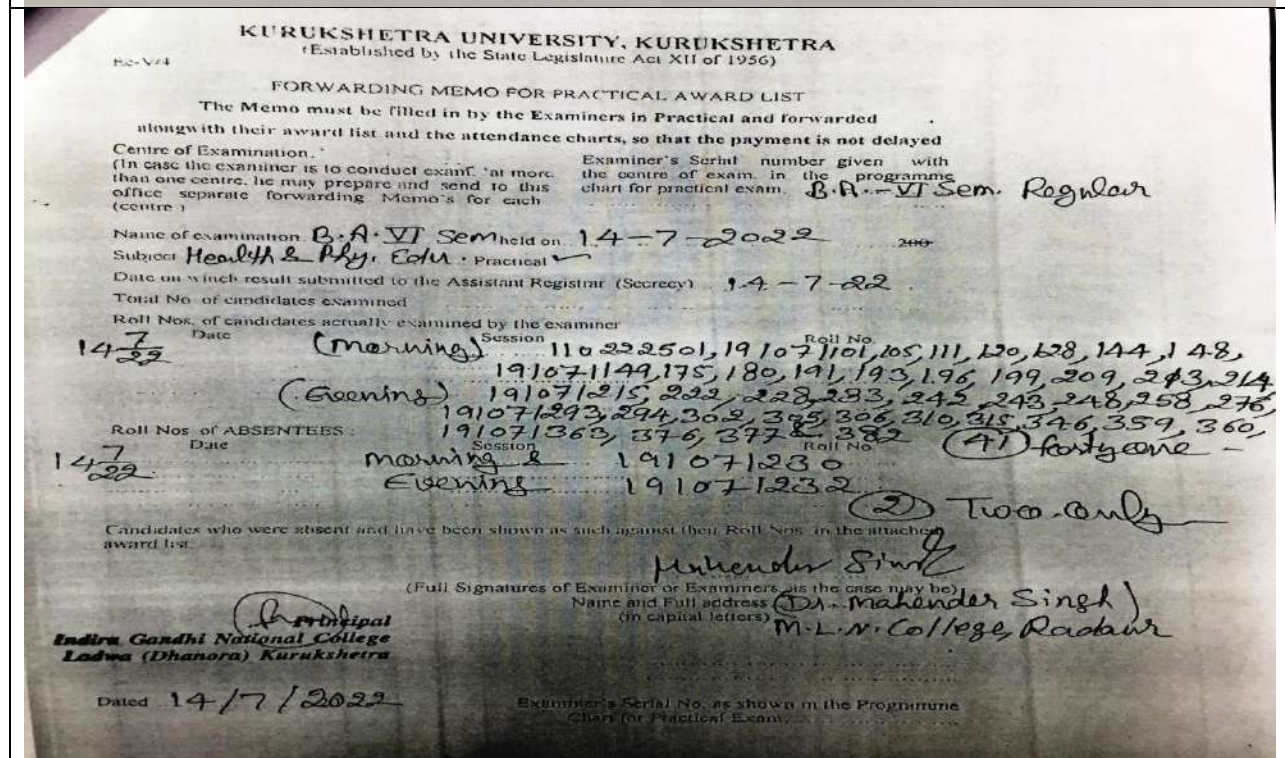 KURUKSHETRA UNIVERSITY, KURUKSHETRA
(Established by the State Legislature Act XII of 1956)
FORWARDING MEMO FOR PRACTICAL AWARD LIST
The Memo must be filled in by the Examiners in Practical and forwarded
alongwith their award list and the attendance charts, so that the payment is not delayed
Centre of Examination.
(In case the examiner is to conduct exam. at more
than one centre, he may prepare and send to this
office separate forwarding Memo's for each
(centre )
Examiner's Serial number given with
the centre of exam. in the programme
chart for practical exam. B.A.-VI Sem. Regular
Name of examination B.A. VI Sem held on 14-7-2022 200
Subject Health & Phy. Edu. Practical
Date on which result submitted to the Assistant Registrar (Secrecy) 14-7-22
Total No. of candidates examined
Roll Nos. of candidates actually examined by the examiner
Date Session Roll No.
14 7/22 (Morning) 110222501, 191071101, 105, 111, 120, 128, 144, 148,
191071149, 175, 180, 191, 193, 196, 199, 209, 213, 214
(Evening) 191071215, 222, 228, 233, 242, 243, 248, 258, 276,
191071293, 294, 302, 305, 306, 310, 315, 346, 359, 360,
Roll Nos of ABSENTEES : 191071363, 376, 377 & 382 (41) forty one -
Date Session Roll No
14 7/22 Morning & 191071230
Evening 191071232
(2) Two only
Candidates who were absent and have been shown as such against their Roll Nos. in the attached
award list.
Mahender Singh
(Full Signatures of Examinor or Examiners as the case may be)
Name and Full address (Dr. Mahender Singh)
(in capital letters) M.L.N. College, Radaur
Principal
Indira Gandhi National College
Ladwa (Dhanora) Kurukshetra
Dated 14/7/2022
Examiner's Serial No. as shown in the Programme
Chart for Practical Exam.